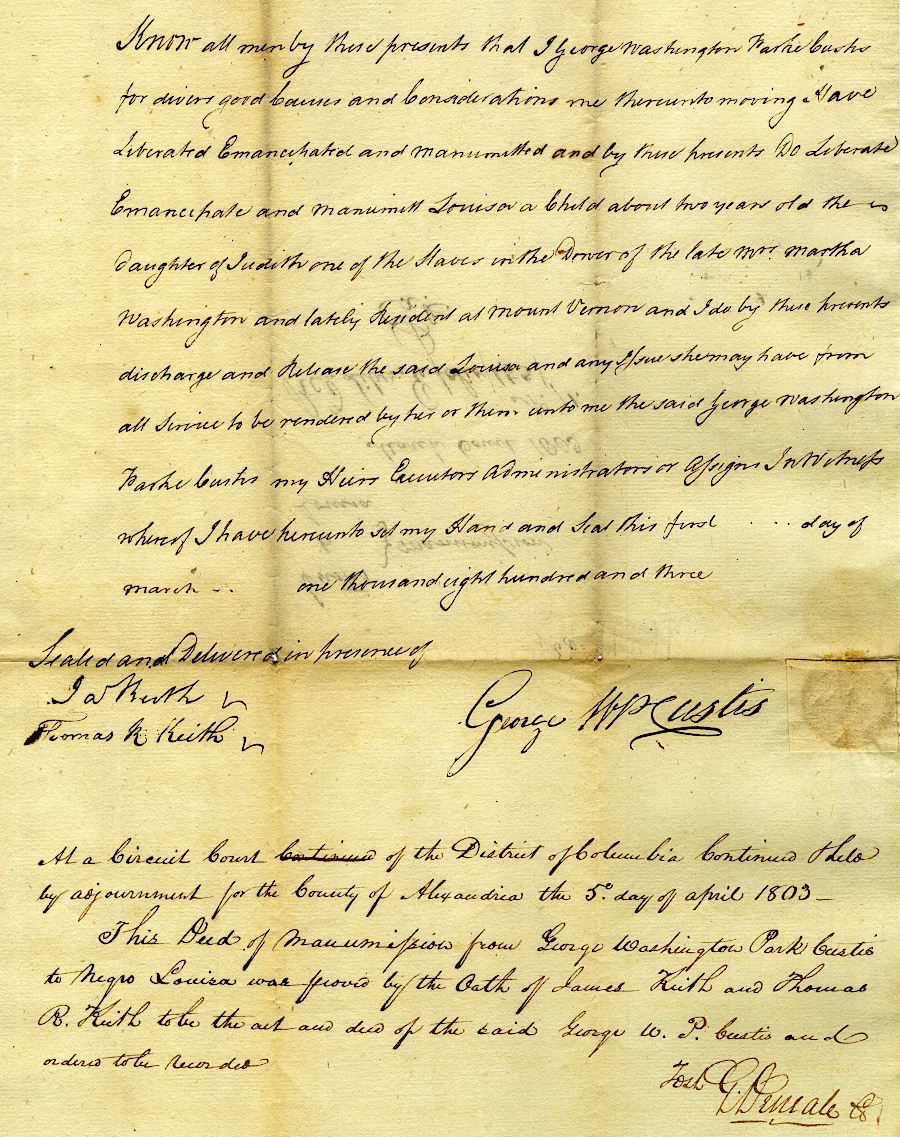 Know all men by these presents that I George Washington Parke Custis
for divers good Causes and Considerations me thereunto moving Have
Liberated Emancipated and manumitted and by these presents Do Liberate
Emancipate and manumitt Louisa a Child about two years old the
daughter of Judith one of the Slaves in the Dower of the late Mrs. Martha
Washington and lately Resident at Mount Vernon and I do by these presents
discharge and Release the said Louisa and any Issue she may have from
all Service to be rendered by her or them unto me the said George Washington
Parke Custis my Heirs Executors Administrators or Assigns In Witness
whereof I have hereunto set my Hand and Seal this first .... day of
march .. one thousand eight hundred and three
Sealed and Delivered in presence of
Jas Keith
Thomas R Keith
George WP Custis
At a Circuit Court Continued of the District of Columbia Continued Held
by adjournment for the County of Alexandria the 5o. day of april 1803 —
This Deed of Manumission from George Washington Park Custis
to Negro Louisa was proved by the Oath of James Keith and Thomas
R. Keith to be the act and deed of the said George W. P. Custis and
ordered to be recorded
Test
G. Deneale